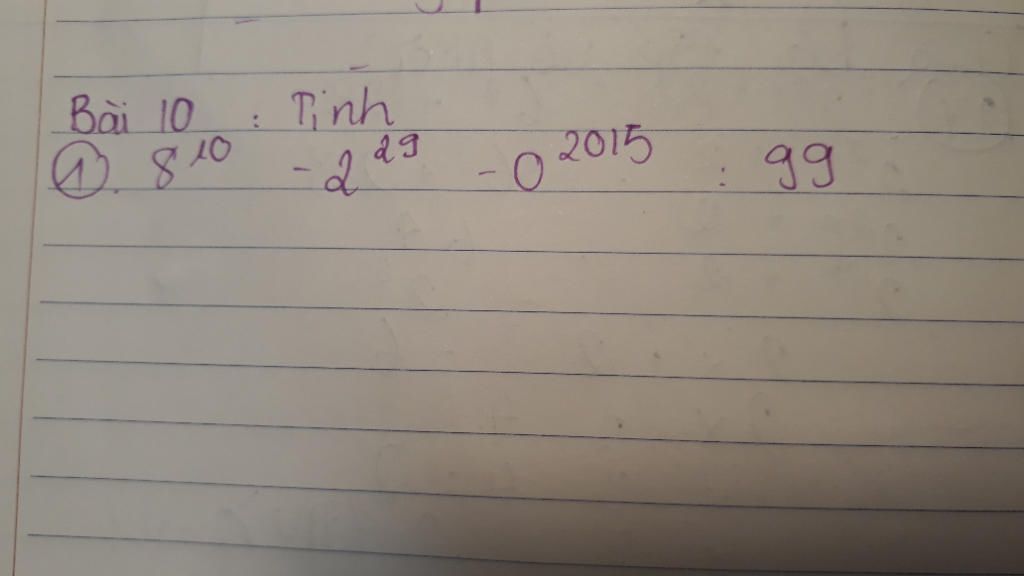 Bài 10 : Tính
①. 8¹⁰ - 2²⁹ - 0²⁰¹⁵ : 99